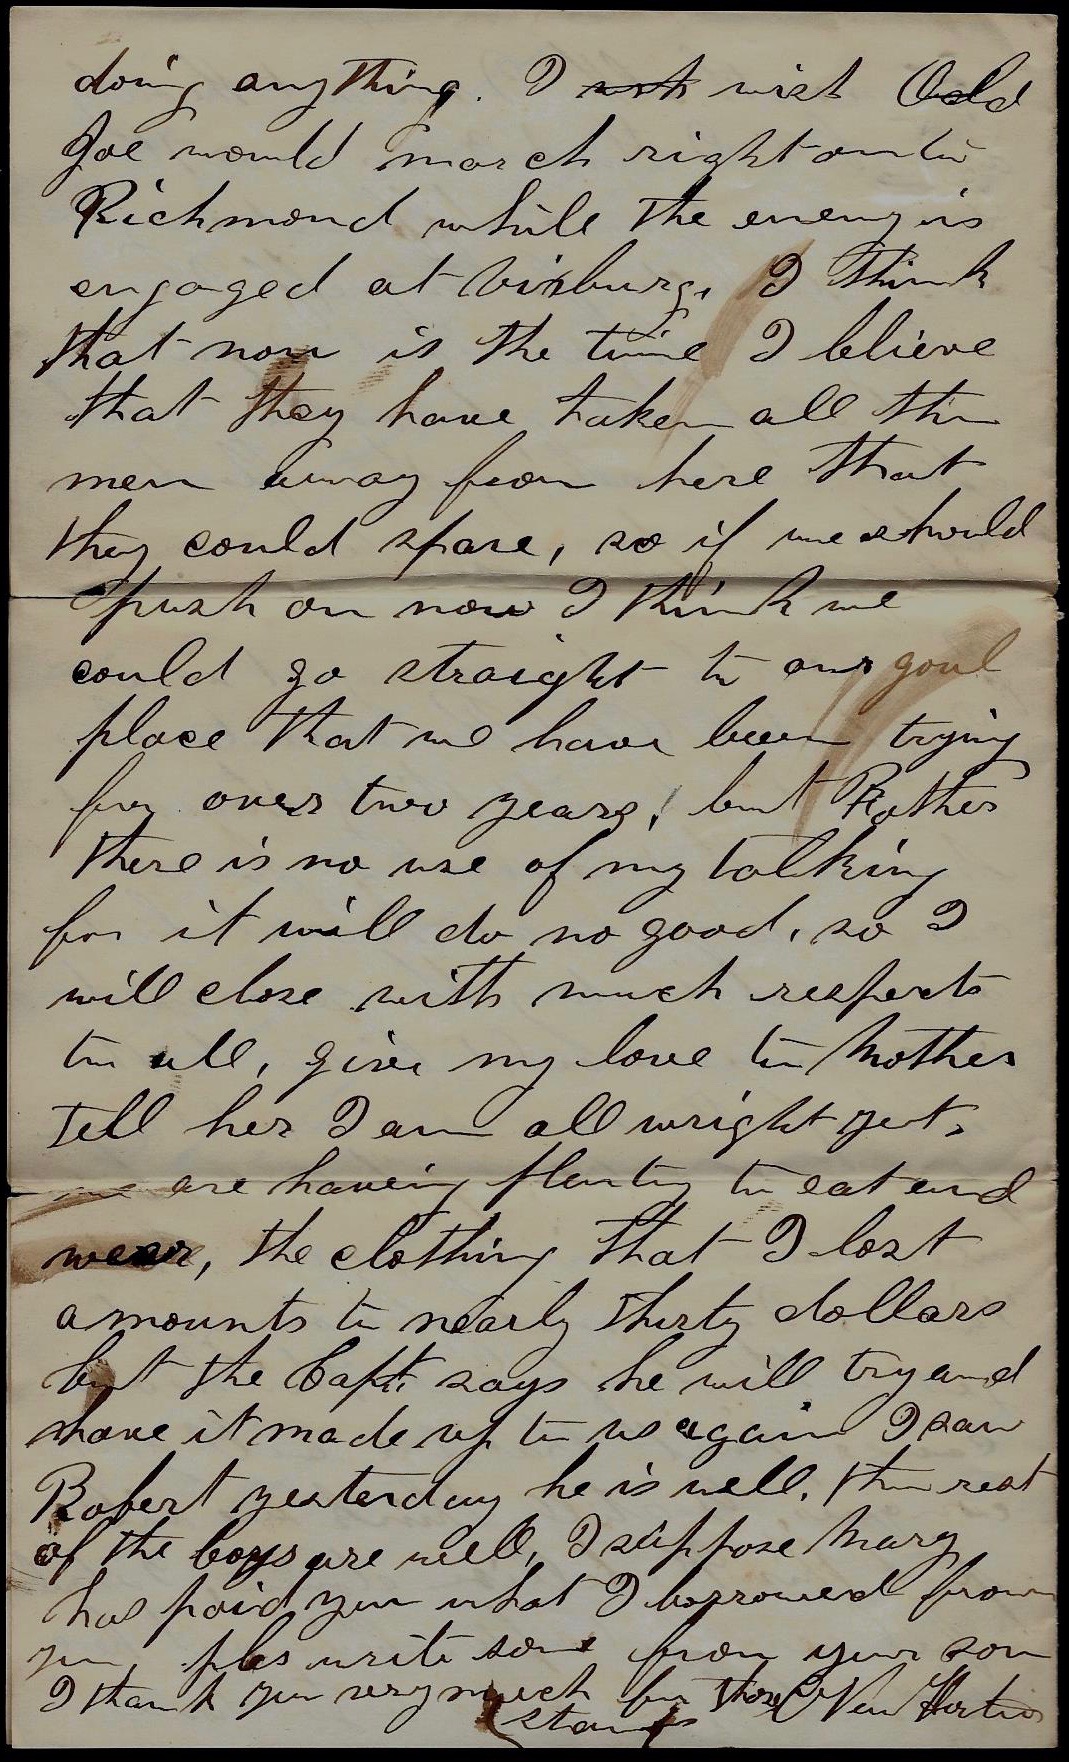 doing anything. I wish Old
Joe would march right on to
Richmond while the enemy is
engaged at Vixburg, I think
that now is the time I blieve
that they have taken all thire
men away from here that
they could spare, so if we should
push on now I think we
could go straight to our
place that we have been trying
for over two years, but Father
there is no use of my talking
for it will do no good, so I
will close with much respects
to all, give my love to Mother
tell her I am all wright yet,
we are haveing plenty to eat and
wear, the clothing that I lost
amounts to nearly thirty dollars
but the Capt. says he will try and
have it made up to us again I saw
Robert yesterday he is well, the rest
of the boys are well, I suppose Mary
has paid you what I borrowed from
you, pleas write soon from your son
I thank you very much for those
stamps